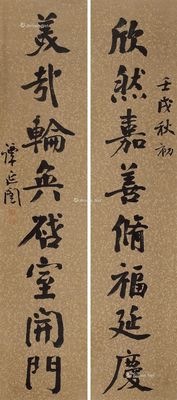 壬戌秋初
欣然嘉善脩福延慶
美哉輪奐啓室開門
譚延闓